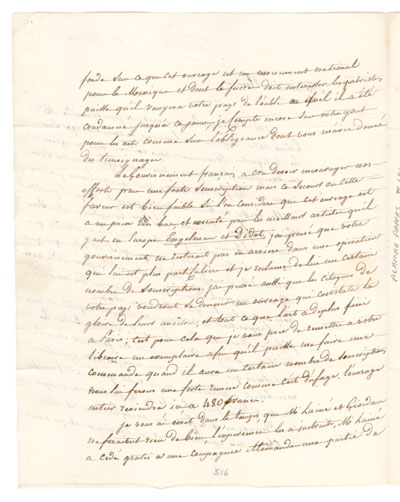 fondé sur ce que cet ouvrage est un monument national
pour le Mexique et dont le succès doit intéresser les patriotes
puisqu'il vengera votre pays de l'oubli au quel il a été
condamné jusqu'à ce jour; je compte encore sur votre goût
pour les arts comme sur l'obligeance dont vous m'avez donné
du témoignages.
Le Gouvernement français a cru devoir encourager nos
efforts par une forte souscription mais ce secours ou cette
faveur est bien faible si l'on considère que cet ouvrage est
a un prix très bas et exécuté par les meilleurs artistes qu'il
y ait en Europe Engelman et Didot, j'ai pensé que votre
gouvernement ne resterait pas en arrière dans une opération
qui lui est plus particulière et je réclame de lui un certain
nombre de souscriptions, j'ai pensé aussi que les citoyens de
votre pays voudront se procurer un ouvrage qui constate la
gloire de leurs ancêtres, et tout ce que l'art a de plus fini
à Paris; c'est pour cela que je vous prie de remettre a votre
libraire un exemplaire afin qu'il puisse me faire une
commande quand il aura un certain nombre de souscriptions
nous lui ferons une forte remise comme c'est d'usage, l'ouvrage
entier reviendra ici a 480 francs.
Je vous ai écrit dans le temps que M. Lainé et Giordan
ne feraient rien de bien, l'expérience l'a démontré, M. Lainé
a cédé gratis a une compagnie Allemande une partie de
516
ALAMAN PAPERS